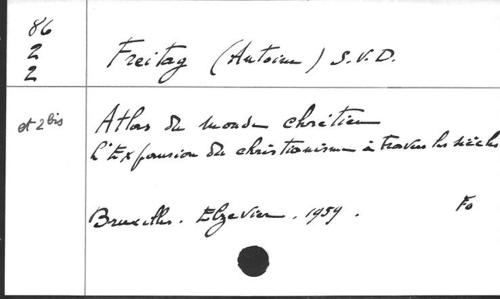 86
2
2
Freitag (Antoine) S.V.D.
et 2 bis
Atlas du monde chrétien
L'Expansion du christianisme à travers les siècles
Bruxelles. Elzevier. 1959.
Fo